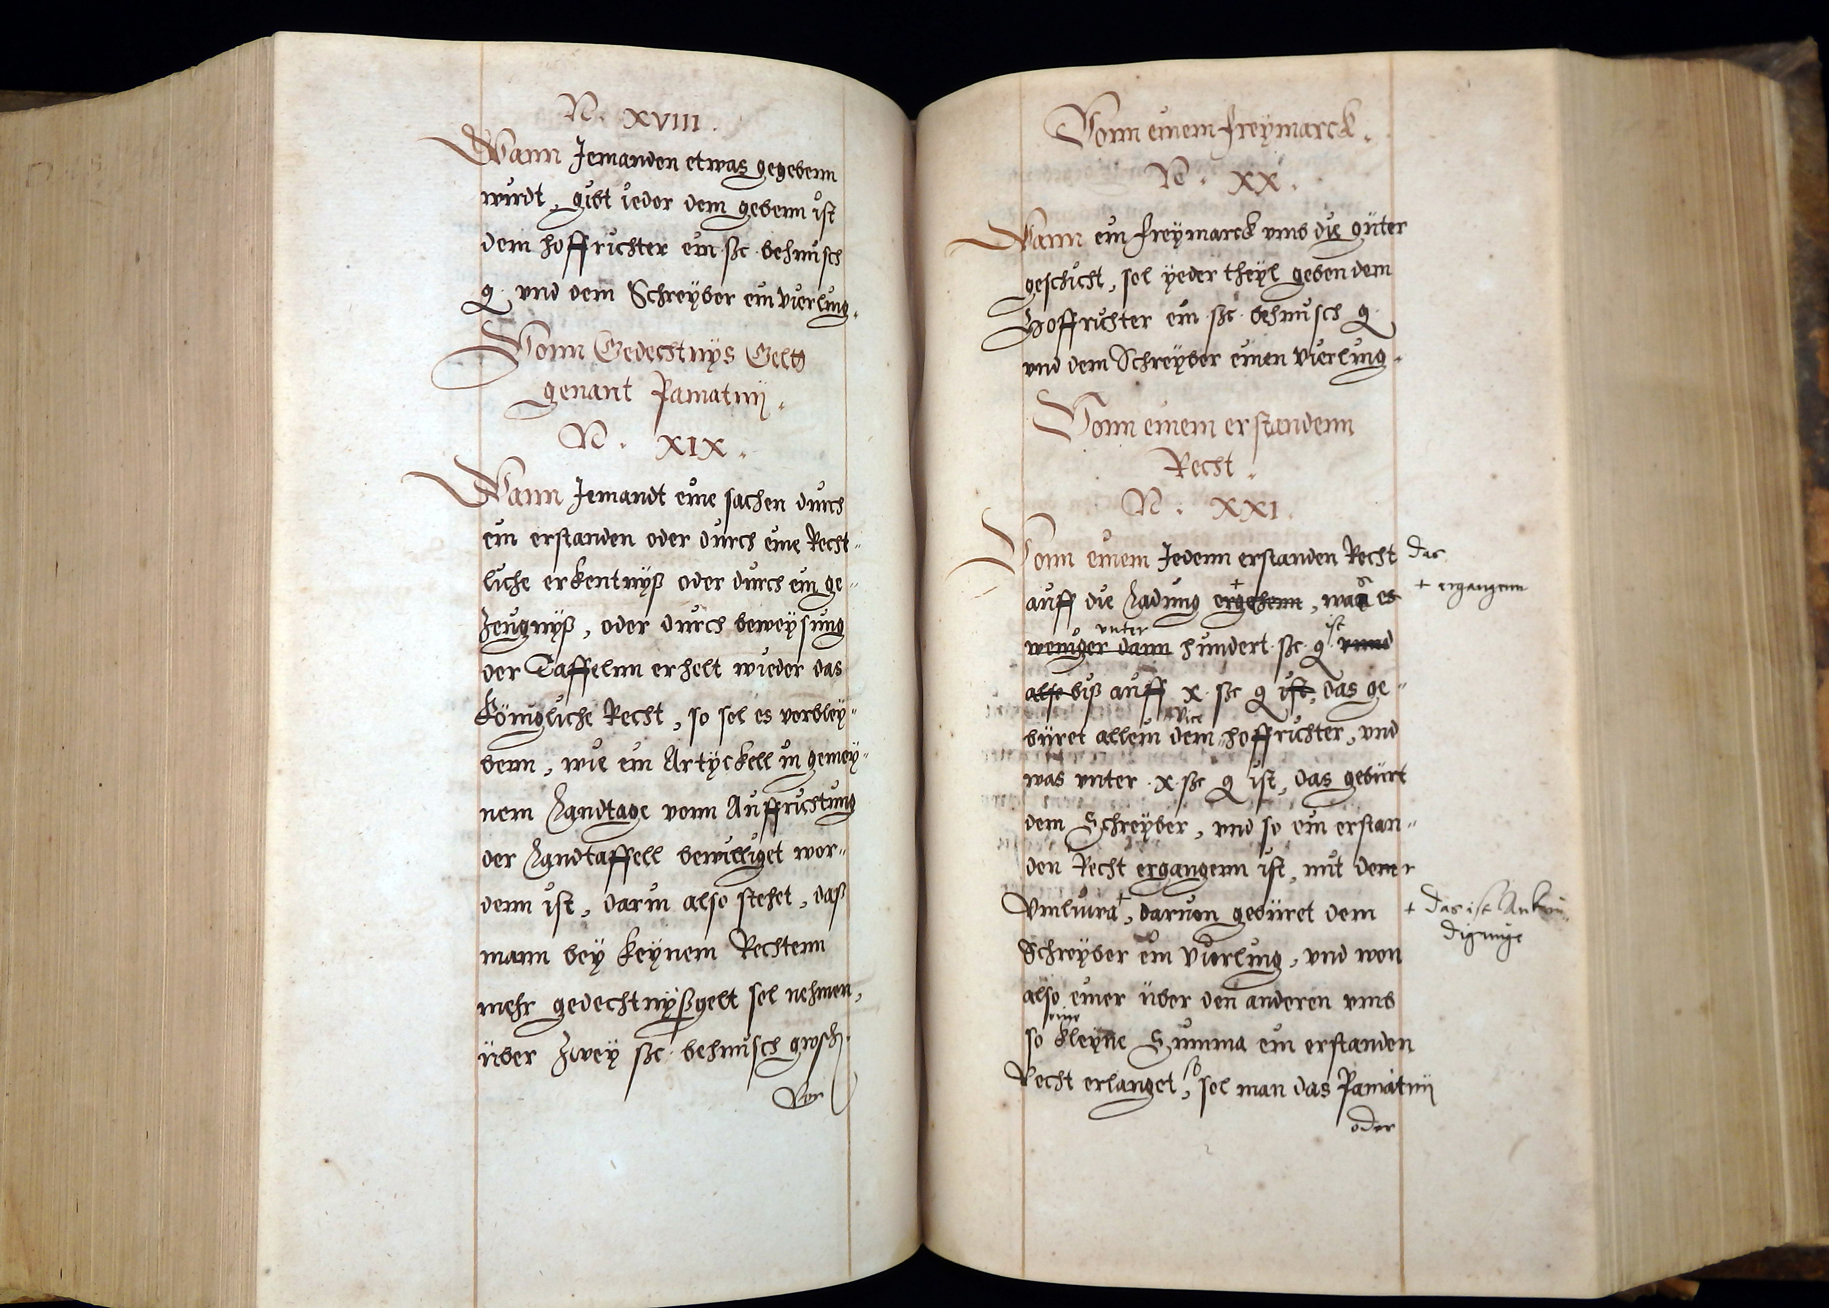 N. XVIII.
Wann Jemanden etwas gegebenn
wirdt, gibt ieder dem gebenn ist
dem hoffrichter ein ßc behmisch
g. vnd dem Schreyber ein vierling.
Vonn Gedechtnÿs Gelt
genant Pamatnij.
N. XIX.
Wann Jemandt eine sachen durch
ein erstanden oder durch eine Recht-
liche erkentnÿß oder durch ein ge-
zeugnÿß, oder durch beweÿsung
der Taffelnn erhelt wieder das
Königliche Recht, so sol es verbleÿ-
benn, wie ein Artÿckell in gemeÿ-
nem Landtage vonn Auffrichtung
der Landtaffell bewilliget wor-
denn ist, darin also stehet, daß
mann bey keÿnem Rechtenn
mehr gedechtnÿßgelt sol nehmen,
über Zweÿ ßc behmisch grosch.
Vonn einem freÿmarck.
N. XX.
Wann ein freÿmarck vmb die güter
geschicht, sol ÿeder theÿl geben dem
Hoffrichter ein ßc behmisch g.
vnd dem Schreÿber einen vierling.
Vonn einem erstandenn
Recht.
N. XXI.
Vonn einem Jedenn erstanden Recht das
auff die Ladung + ergehenn, was es + ergangenn
unter
weniger dann hundert ßc g ist vnnd
also biß auff x ßc g ist, das ge-
Vice
büret allein dem hoffrichter, vnd
was vnter x ßc g ist, das gebürt
dem Schreÿber, vnd so ein erstan-
den Recht ergangenn ist, mit dem
Vmluwa +, daruon gebüret dem + Das ist Ankün
Schreÿber ein Vierling, vnd wen digunge
also einer über den anderen vmb
eine
so kleÿne Summa ein erstanden
Recht erlanget, so sol man das Pamatnij
oder